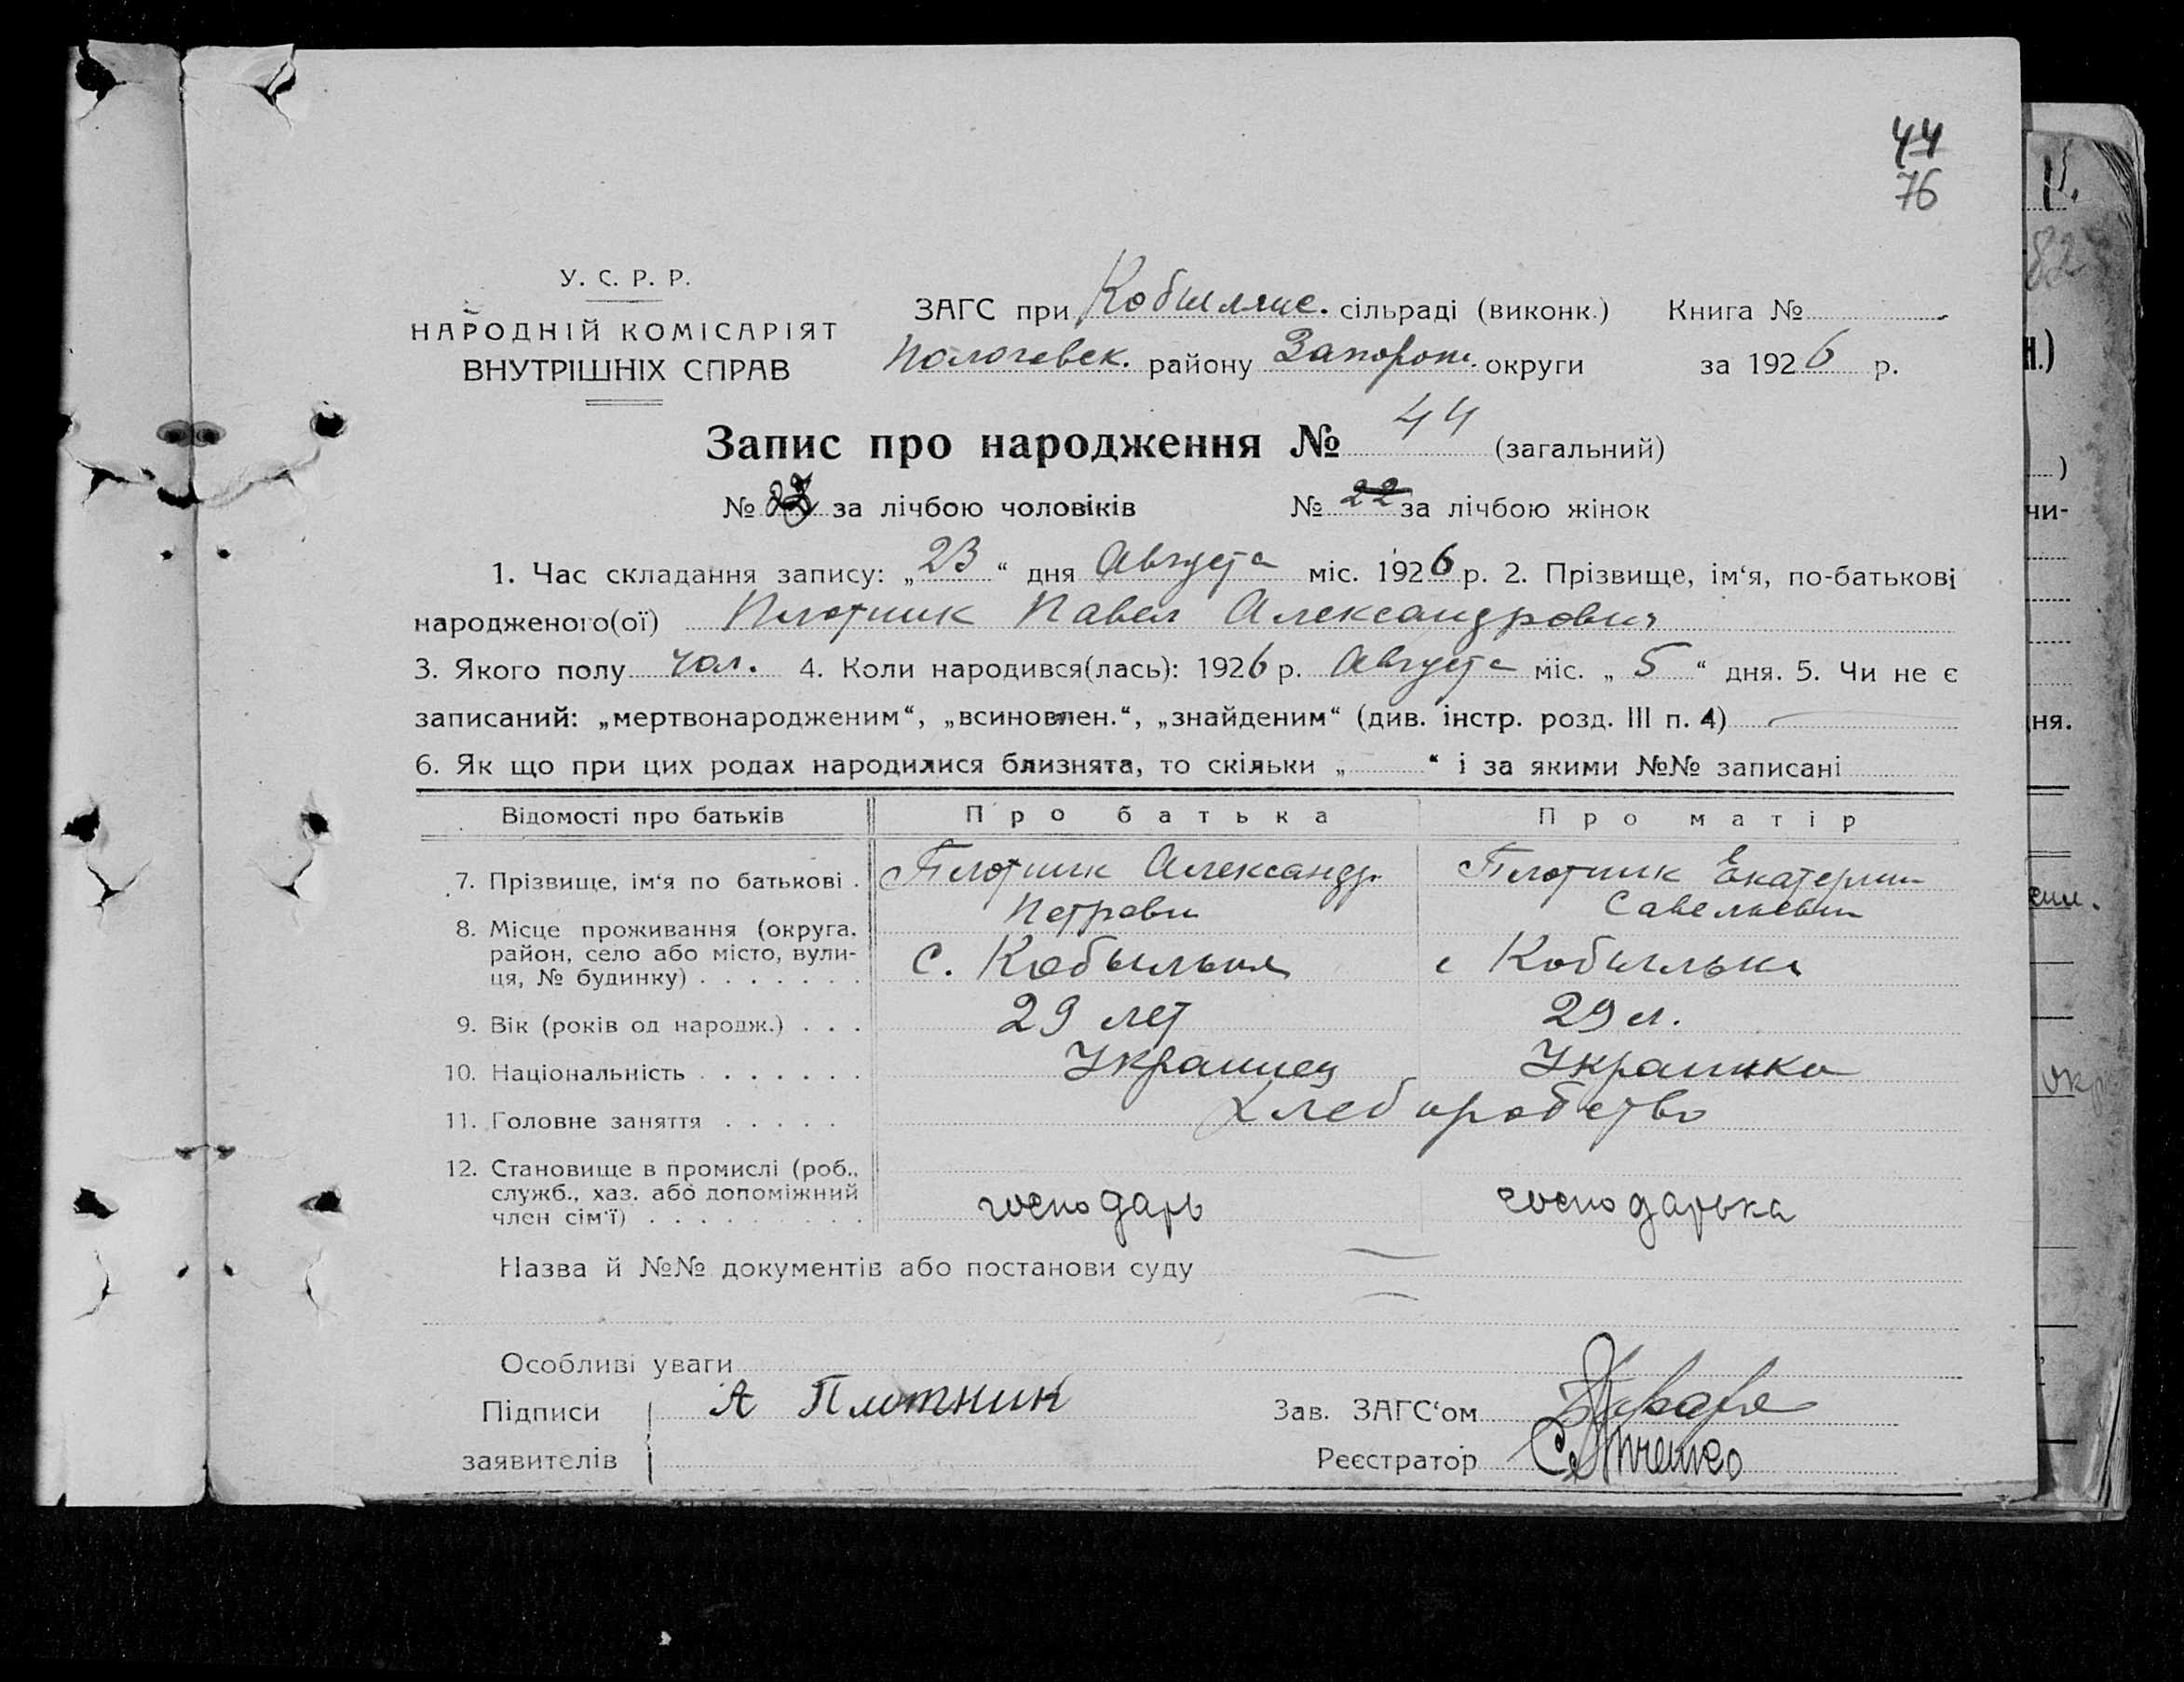 44
76
У. С. Р. Р.
НАРОДНІЙ КОМІСАРІЯТ
ВНУТРІШНІХ СПРАВ
ЗАГС при Кобиляис. сільраді (виконк.) Книга №
Пологовск. району Запорож. округи за 1926 р.
Запис про народження № 44 (загальний)
№ за лічбою чоловіків № 22 за лічбою жінок
1. Час складання запису: „23“ дня Августа міс. 1926 р. 2. Прізвище, ім‘я, по-батькові
народженого(ої) Плотник Павел Александрович
3. Якого полу чол. 4. Коли народився(лась): 1926 р. Августа міс. „5“ дня. 5. Чи не є
записаний: „мертвонародженим“, „всиновлен.“, „знайденим“ (див. інстр. розд. III п. 4)
6. Як що при цих родах народилися близнята, то скільки „ “ і за якими №№ записані
Відомості про батьків Про батька Про матір
7. Прізвище, ім‘я по батькові . Плотник Александр Плотник Екатерин
Петрови Савельевн
8. Місце проживання (округа.
район, село або місто, вули-
ця, № будинку) . . . . . . . с. Кобылья с Кобылья
9. Вік (років од народж.) . . . 29 лет 29 л.
10. Національність . . . . . . . Украинец Украинка
11. Головне заняття . . . . . Хлеборобство
12. Становище в промислі (роб.,
служб., хаз. або допоміжний
член сім‘ї) . . . . . . . . . господарь господарька
Назва й №№ документів або постанови суду
Особливі уваги
Підписи А Плотник Зав. ЗАГС‘ом
заявителів Реєстратор